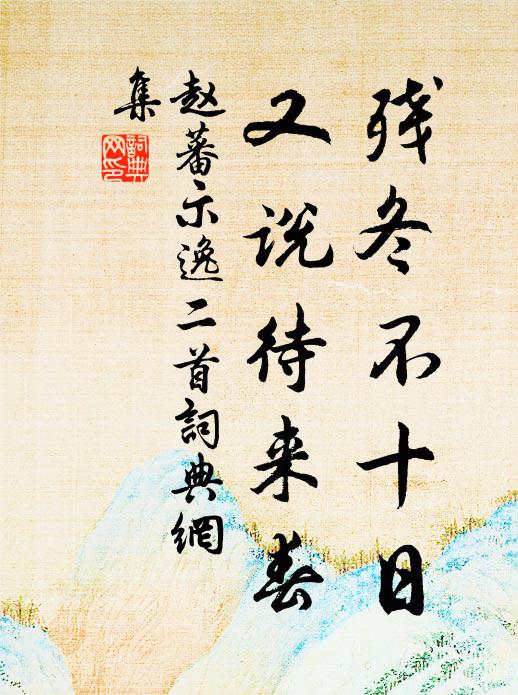 残冬不十日
又说待来春
赵蕃示逸二首詞典網
集
詞典網印